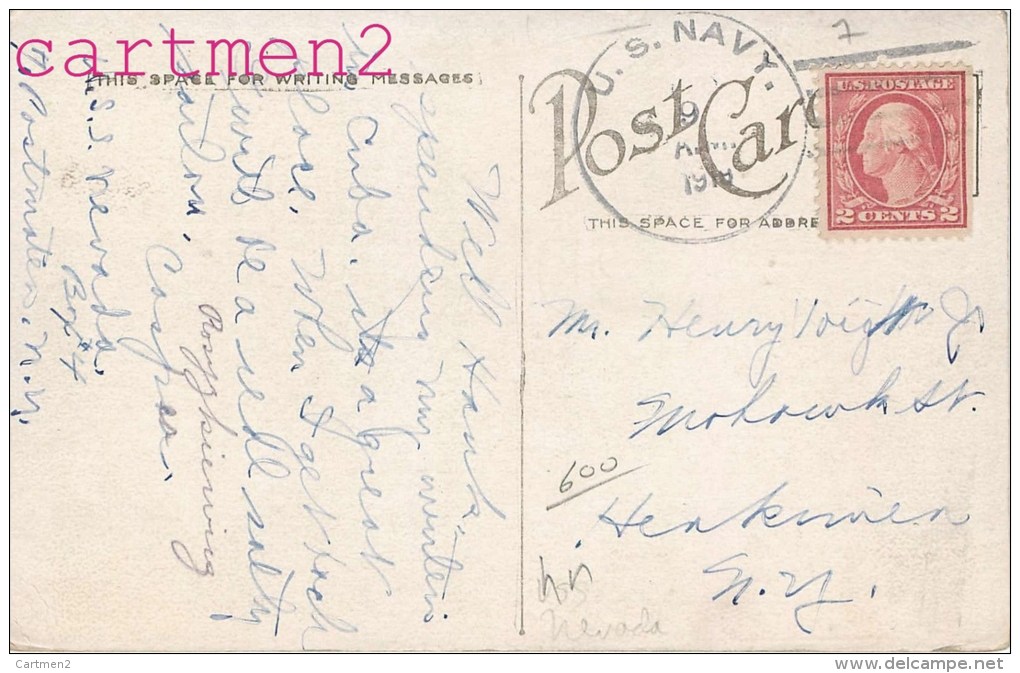 cartmen2
THIS SPACE FOR WRITING MESSAGES
Well Hank,
spending my winter
in Cuba. a great
place. When I get back
I will be a real salty
sailor. Casper.
U.S.S. Nevada.
Box 4
Postmaster, N.Y.
Post Card
THIS SPACE FOR ADDRE
U. S. NAVY.
9
191
7
U.S. POSTAGE
2 CENTS 2
Mr. Henry Voight Jr
Mohawk St.
600
Herkimer
N.Y.
Nevada
Cartmen2
www.delcampe.net